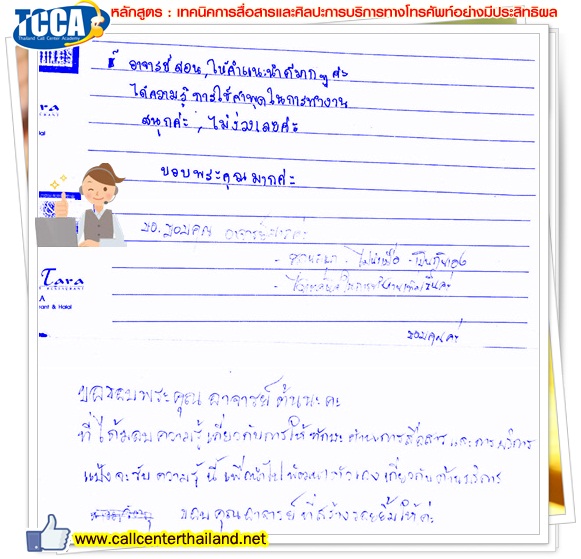 TCCA
Thailand Call Center Academy
หลักสูตร : เทคนิคการสื่อสารและศิลปะการบริการทางโทรศัพท์อย่างมีประสิทธิผล
อาจารย์สอน, ให้คำแนะนำดีมากๆค่ะ
ได้ความรู้ การใช้คำพูดในการทำงาน
สนุกค่ะ, ไม่ง่วงเลยค่ะ
ขอบพระคุณมากค่ะ
ขอบคุณ อาจารย์
- ไม่น่าเบื่อ - เป็นกันเอง
Tara
RESTAURANT
A
rant & Halal
ขอบคุณค่ะ
ขอขอบพระคุณ อาจารย์ ต้นนะคะ
ที่ได้มอบความรู้เกี่ยวกับการให้ทักษะ ด้านการสื่อสาร และการบริการ
แป้งจะรับความรู้นี้ เพื่อนำไปพัฒนาตัวเองเกี่ยวกับด้านบริการ
ขอบคุณอาจารย์ ที่สร้างรอยยิ้มให้ค่ะ
www.callcenterthailand.net